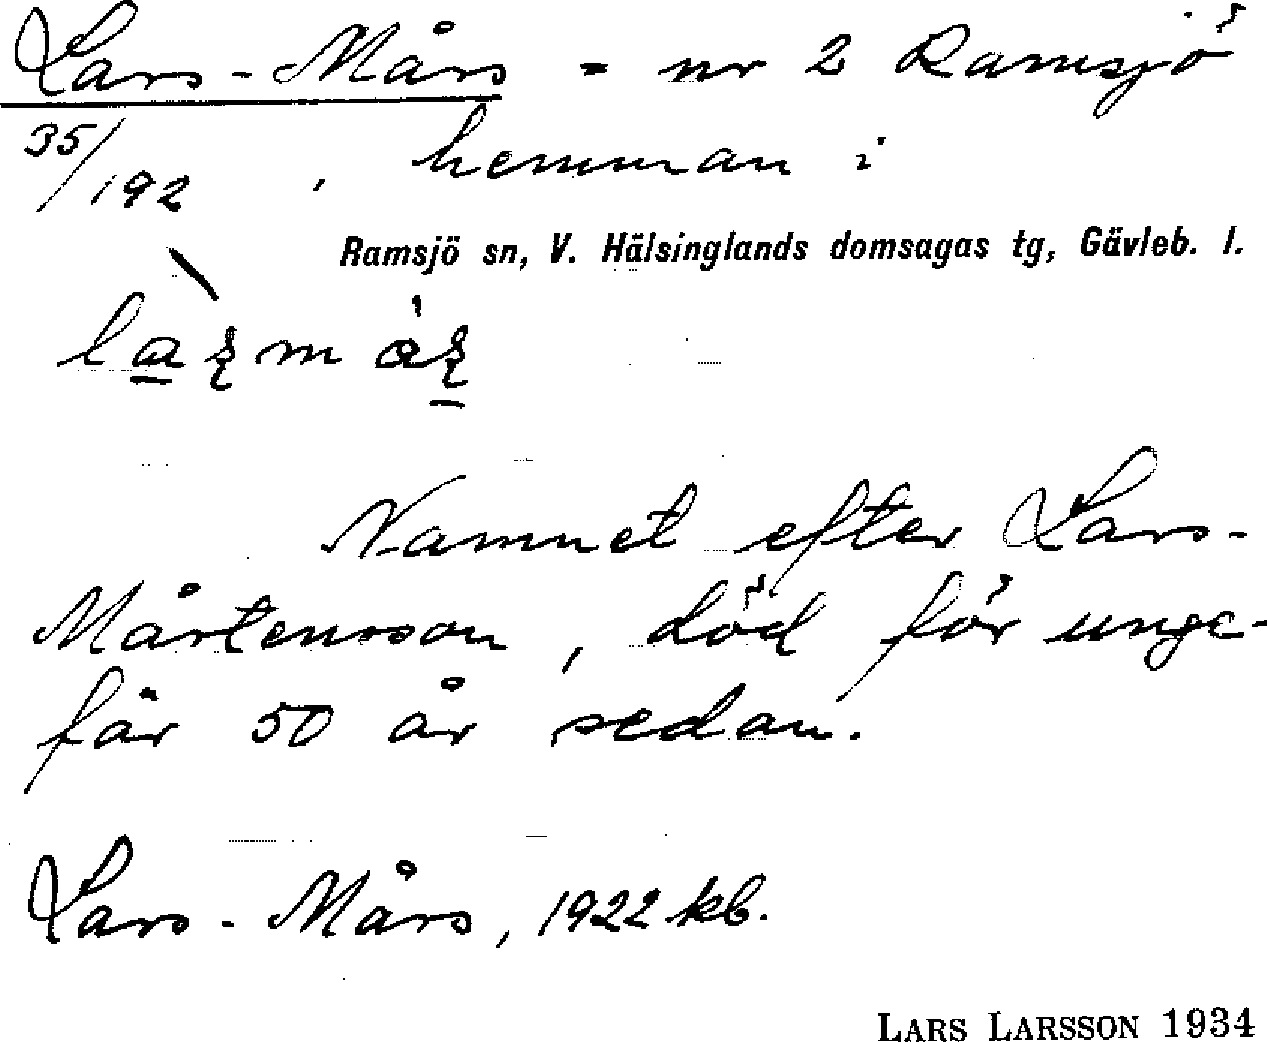 Lars-Mårs = nr 2 Ramsjö
35/192, hemman i
Ramsjö sn, V. Hälsinglands domsagas tg, Gävleb. l.
Namnet efter Lars-
Mårtensson, död för unge-
fär 50 år sedan.
Lars-Mårs, 1922 kb.
LARS LARSSON 1934